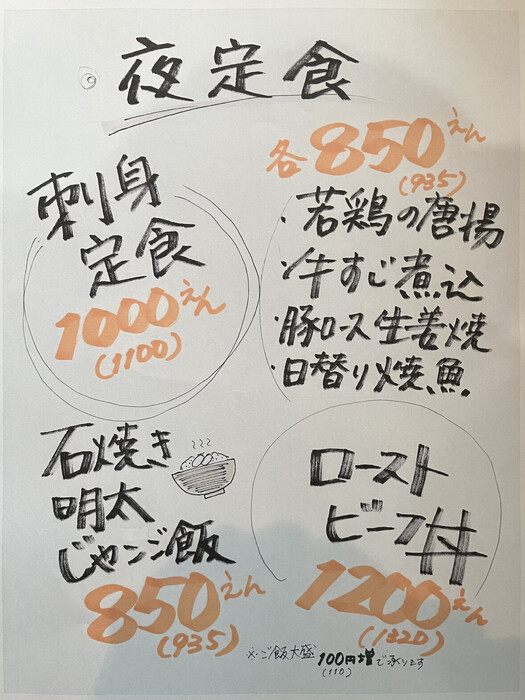 夜定食
刺身
定食
1000えん
(1100)
各850えん
(935)
・若鶏の唐揚
・牛すじ煮込
・豚ロース生姜焼
・日替り焼魚
石焼き
明太
じゃンご飯
850えん
(935)
ロースト
ビーフ丼
1200えん
(1320)
※ご飯大盛 100円増で承ります
(110)